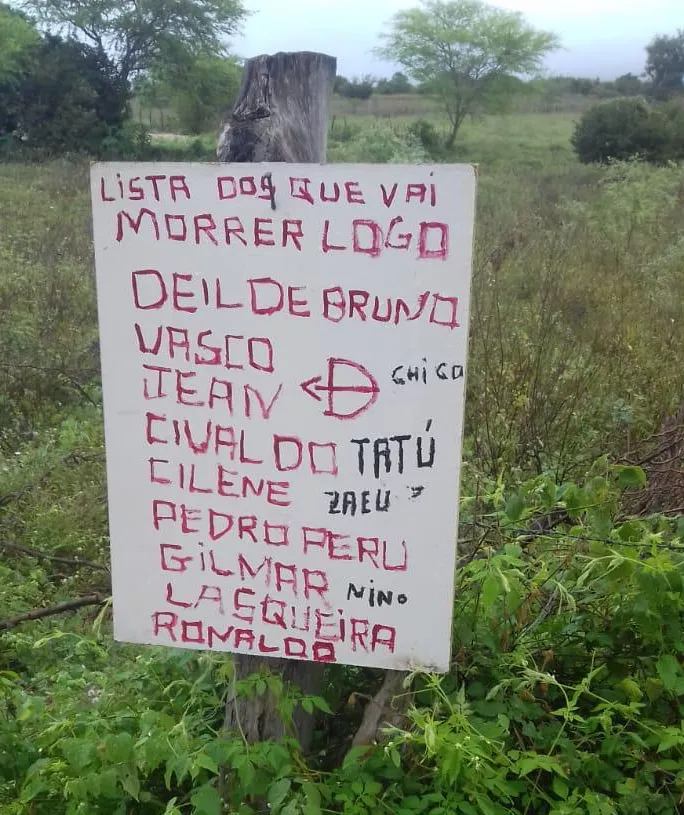 LISTA DOS QUE VAI
MORRER LOGO
DEIL DE BRUNO
VASCO
JEAN CHICO
CIVALDO TATÚ
CILENE ZAEU
PEDRO PERU
GILMAR NINO
LASQUEIRA
RONALDO